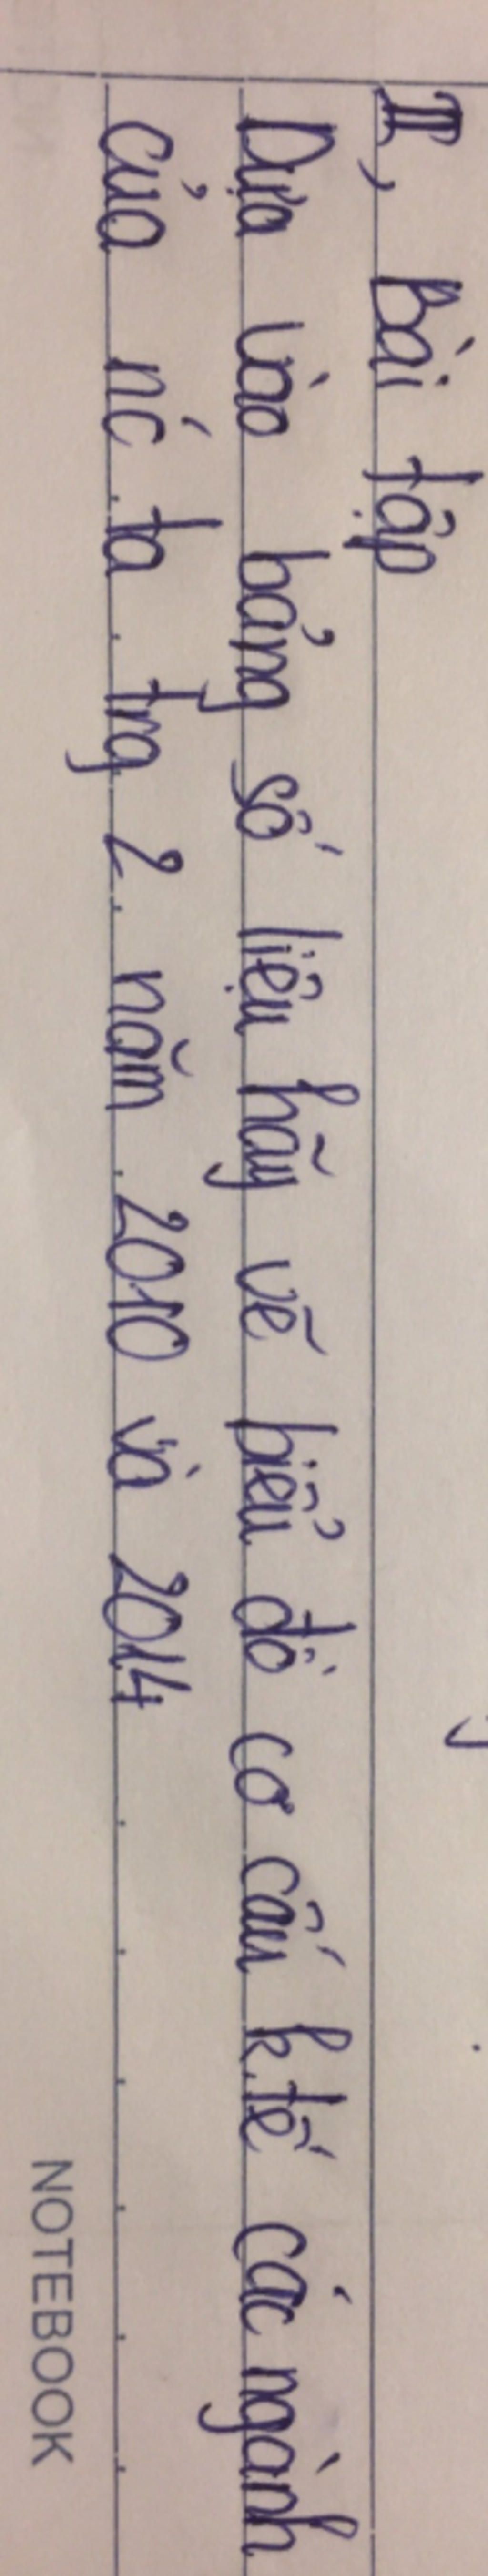 II, Bài tập
Dựa vào bảng số liệu hãy vẽ biểu đồ cơ cấu k.tế các ngành
của nc ́ ta trg 2 năm 2010 và 2014
NOTEBOOK